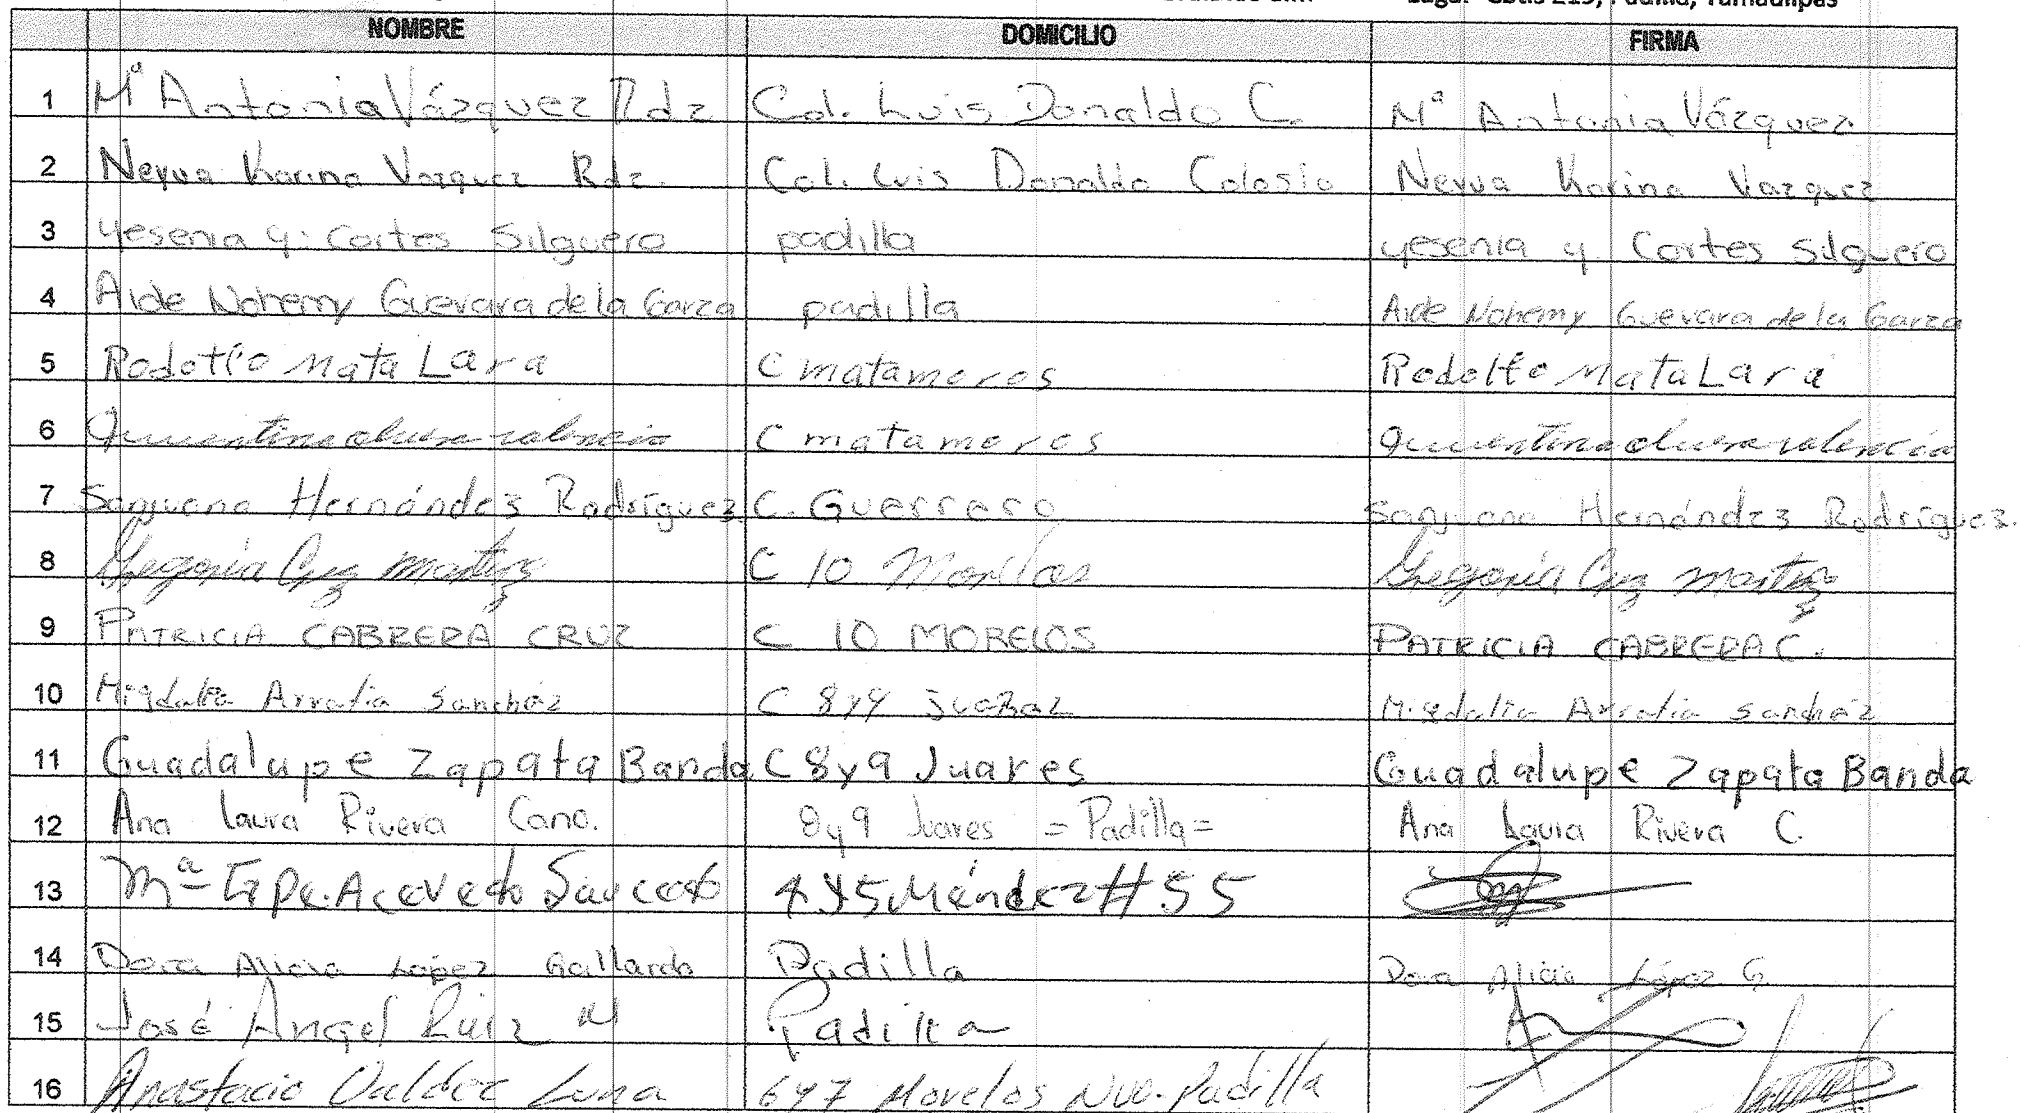 Lugar Cbtis 219, Padilla, Tamaulipas
NOMBRE DOMICILIO FIRMA
1 Mª Antonia Vázquez Rdz Col. Luis Donaldo C. Mª Antonia Vázquez
2 Neyva Karina Vazquez Rdz. Col. Luis Donaldo Colosio Neyva Karina Vazquez
3 yesenia y. Cortes Silguero padilla yesenia y. Cortes Silguero
4 Aide Nohemy Guevara de la Garza padilla Aide Nohemy Guevara de la Garza
5 Rodolfo Mata Lara C matamoros Rodolfo Mata Lara
6 valencia C matamoros valencia
7 Sanjuana Hernández Rodríguez C. Guerrero Sanjuana Hernández Rodríguez.
8 Gregoria Cruz Martinez C 10 Morelos Gregoria Cruz Martinez
9 PATRICIA CABRERA CRUZ C 10 MORELOS PATRICIA CABRERA C.
10 Migdalia Arratia Sanchéz C 8 y 9 Juaraz Migdalia Arratia Sanchéz
11 Guadalupe Zapata Banda C 8 y 9 Juares Guadalupe Zapata Banda
12 Ana Laura Rivera Cano. 8 y 9 Juares = Padilla = Ana Laura Rivera C.
13 Mª Gpe. Acevedo Saucedo 4 y 5 Méndez # 55
14 Dora Alicia López Gallardo Padilla Dora Alicia López G.
15 José Angel Ruiz M Padilla
16 Anastacio Valdez Luna 6 y 7 Morelos Nvo. Padilla